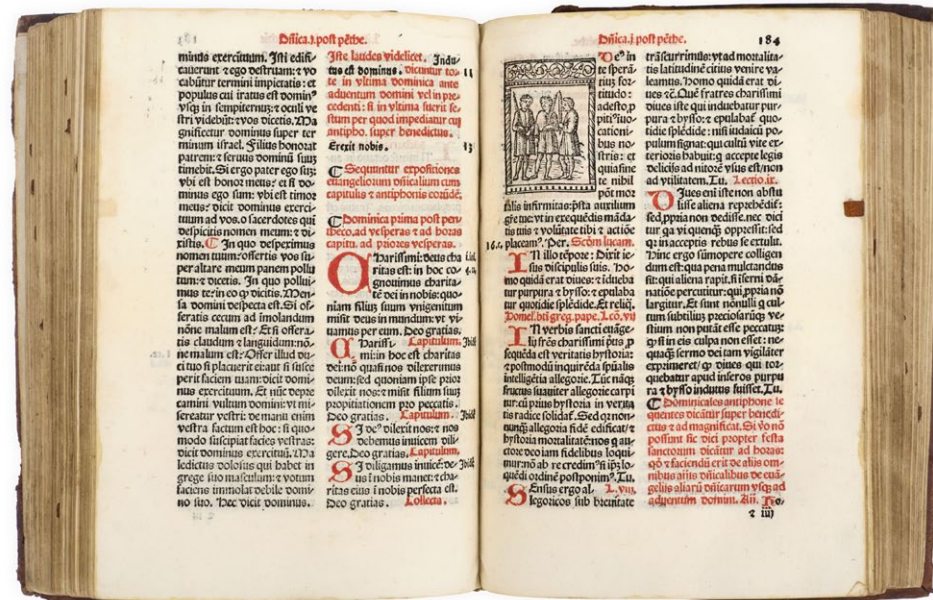 Dñica.j.post pẽthe.
minus exercituum. Isti edifi-
cauerunt ⁊ ego destruam: ⁊ vo
cabũtur termini impietatis: et
populus cui iratus est dominꝰ
vsqꝫ in sempiternũ: ⁊ oculi ve
stri videbũt: ⁊ vos dicetis. Ma
gnificetur dominus super ter
minum israel. Filius honorat
patrem: ⁊ seruus dominũ suuꝫ
timebit. Si ergo pater ego suꝫ:
vbi est honor meus: et si do-
minus ego sum: vbi est timor
meus: dicit dominus exerci-
tuum ad vos. o sacerdotes qui
despicitis nomen meum: ⁊ di-
xistis. ¶ In quo despeximus
nomen tuum: offertis vos su-
per altare meum panem pollu
tum: ⁊ dicetis. In quo pollui-
mus te: in eo ꝙ dicitis. Men-
sa domini despecta est. Si of-
feratis cecum ad imolandum
nõne malum est: Et si offera-
tis claudum ⁊ languidum: nõ-
ne malum est: Offer illud du-
ci tuo si placuerit ei: aut si susce
perit faciem tuam: dicit domi-
nus exercituum. Et nũc depre
camini vultum domini: vt mi-
sereatur vestri: de manu enim
vestra factum est hoc: si quo-
modo suscipiat facies vestras:
dicit dominus exercituũ. Ma
ledictus dolosus qui habet in
grege suo masculum: ⁊ votum
faciens immolat debile domi-
no suo. Hec dicit dominus.
Iste laudes videlicet. Indu-
tus est dominus. dicuntur to- 11
te in vltima dominica ante
aduentum domini vel in pre-
cedenti: si in vltima fuerit fe-
stum per quod impediatur cuꝫ
antipho. super benedictus.
Erexit nobis. 13
¶ Sequuntur expositiones
euangeliorum dñicalium cum
capitulis ⁊ antiphonis eorũdẽ.
¶ Dominica prima post pen-
theco. ad vesperas ⁊ ad horas
capitu. ad priores vesperas.
Charissimi: deus cha
ritas est: in hoc co-
gnouimus charita-
tẽ dei in nobis: quo-
niam filium suum vnigenitum
misit deus in mundum: vt vi-
uamus per eum. Deo gratias.
Charissi- Capitulum. Ibid
mi: in hoc est charitas
dei: nõ quasi nos dilexerimus
deum: sed quoniam ipse prior
dilexit nos: ⁊ misit filium suuꝫ
propitiationem pro peccatis.
Deo gratias. Capitulum. Ibid
Si deꝰ dilexit nos: ⁊ nos
debemus inuicem dili-
gere. Deo gratias. Capitulum.
Si diligamus inuicẽ: de- Ibid
us ĩ nobis manet: ⁊ cha-
ritas eius ĩ nobis perfecta est.
Deo gratias. Collecta.
Dñica.j. post pẽthe. 184
Deꝰ in
te sperã-
tiũz for
titudo:
adesto p
pitiꝰ inu
cationi-
bus no-
stris: et
quia sine
te nihil
pot mor
talis infirmitas: p̃sta auxilium
grẽ tue: vt in exequẽdis mãda-
tis tuis ⁊ volũtate tibi ⁊ actiõe
placeamꝰ. Per. Scdm lucam.
In illo tẽpore: Dixit ie-
sus discipulis suis. Ho-
mo quidã erat diues: ⁊ idueba
tur purpura ⁊ bysso: ⁊ epulaba
tur quotidie splẽdide. Et reliq̃.
Homel. bti greg. pape. Lcõ. vij
In verbis sancti euãge-
lij frẽs charissimi p̃us ꝓ
sequẽda est veritatis hystoria:
⁊ postmodũ inquirẽda spũalis
intelligẽtia allegorie. Tũc nãqꝫ
fructus suauiter allegorie carpi
tur: cũ prius hystoria in verita
tis radice solidat̃. Sed qꝛ non-
nunqꝫ allegoria fidẽ edificat: ⁊
hystoria moralitatẽ: nos q̃ au-
ctore deo iam fidelibus loqui-
mur: nõ ab re credimꝰ si ip̃ꝫ lo-
quẽdi ordinẽ postponimꝰ. Tu.
Sensus ergo al- L. viij
legoricos sub breuitate
trãscurrimus: vt ad moralita-
tis latitudinẽ citius venire va-
leamus. Homo quidã erat di-
ues: ⁊ c̃. Quẽ fratres charissimi
diues iste qui induebatur pur-
pura ⁊ bysso: ⁊ epulabat̃ quo-
tidie splẽdide: nisi iudaicũ po-
pulum signat: qui cultũ vite ex-
terioris habuit: ꝗ accepte legis
deliciis ad nitorẽ vsus est: non
ad vtilitatem. Tu. Lectio. ix.
Diues eni iste non abstu
lisse aliena reprehẽdit̃:
sed ꝓpria non dedisse. nec dici
tur ꝙ vi quenqꝫ oppressit: sed
qꝛ in acceptis rebus se extulit.
Hinc ergo sũmopere colligen
dum est: qua pena mulctandus
sit: qui aliena rapit. si iferni dã-
natiõe percutitur: qui ꝓpria nõ
largitur. Et sunt nõnulli ꝗ cul-
tum subtiliũ: preciosarũqꝫ ve-
stium non putãt esse peccatuꝫ:
ꝙ si in eis culpa non esset: ne-
quaqꝫ sermo dei tam vigilãter
exprimeret: ꝙ diues qui tor-
quebatur apud inferos purpu
ra ⁊ bysso indutus fuisset. Tu.
¶ Dominicales antiphone se
quentes dicãtur super benedi-
ctus ⁊ ad magnificat. Si vo nõ
possint sic dici propter festa
sanctorum dicãtur ad horas:
qõ ⁊ faciendũ erit de aliis om-
nibus añis dñicalibus de euã-
geliis aliarũ dñicarum vsqꝫ ad
aduentum domini. Añ. Ho-
⁊ iiij